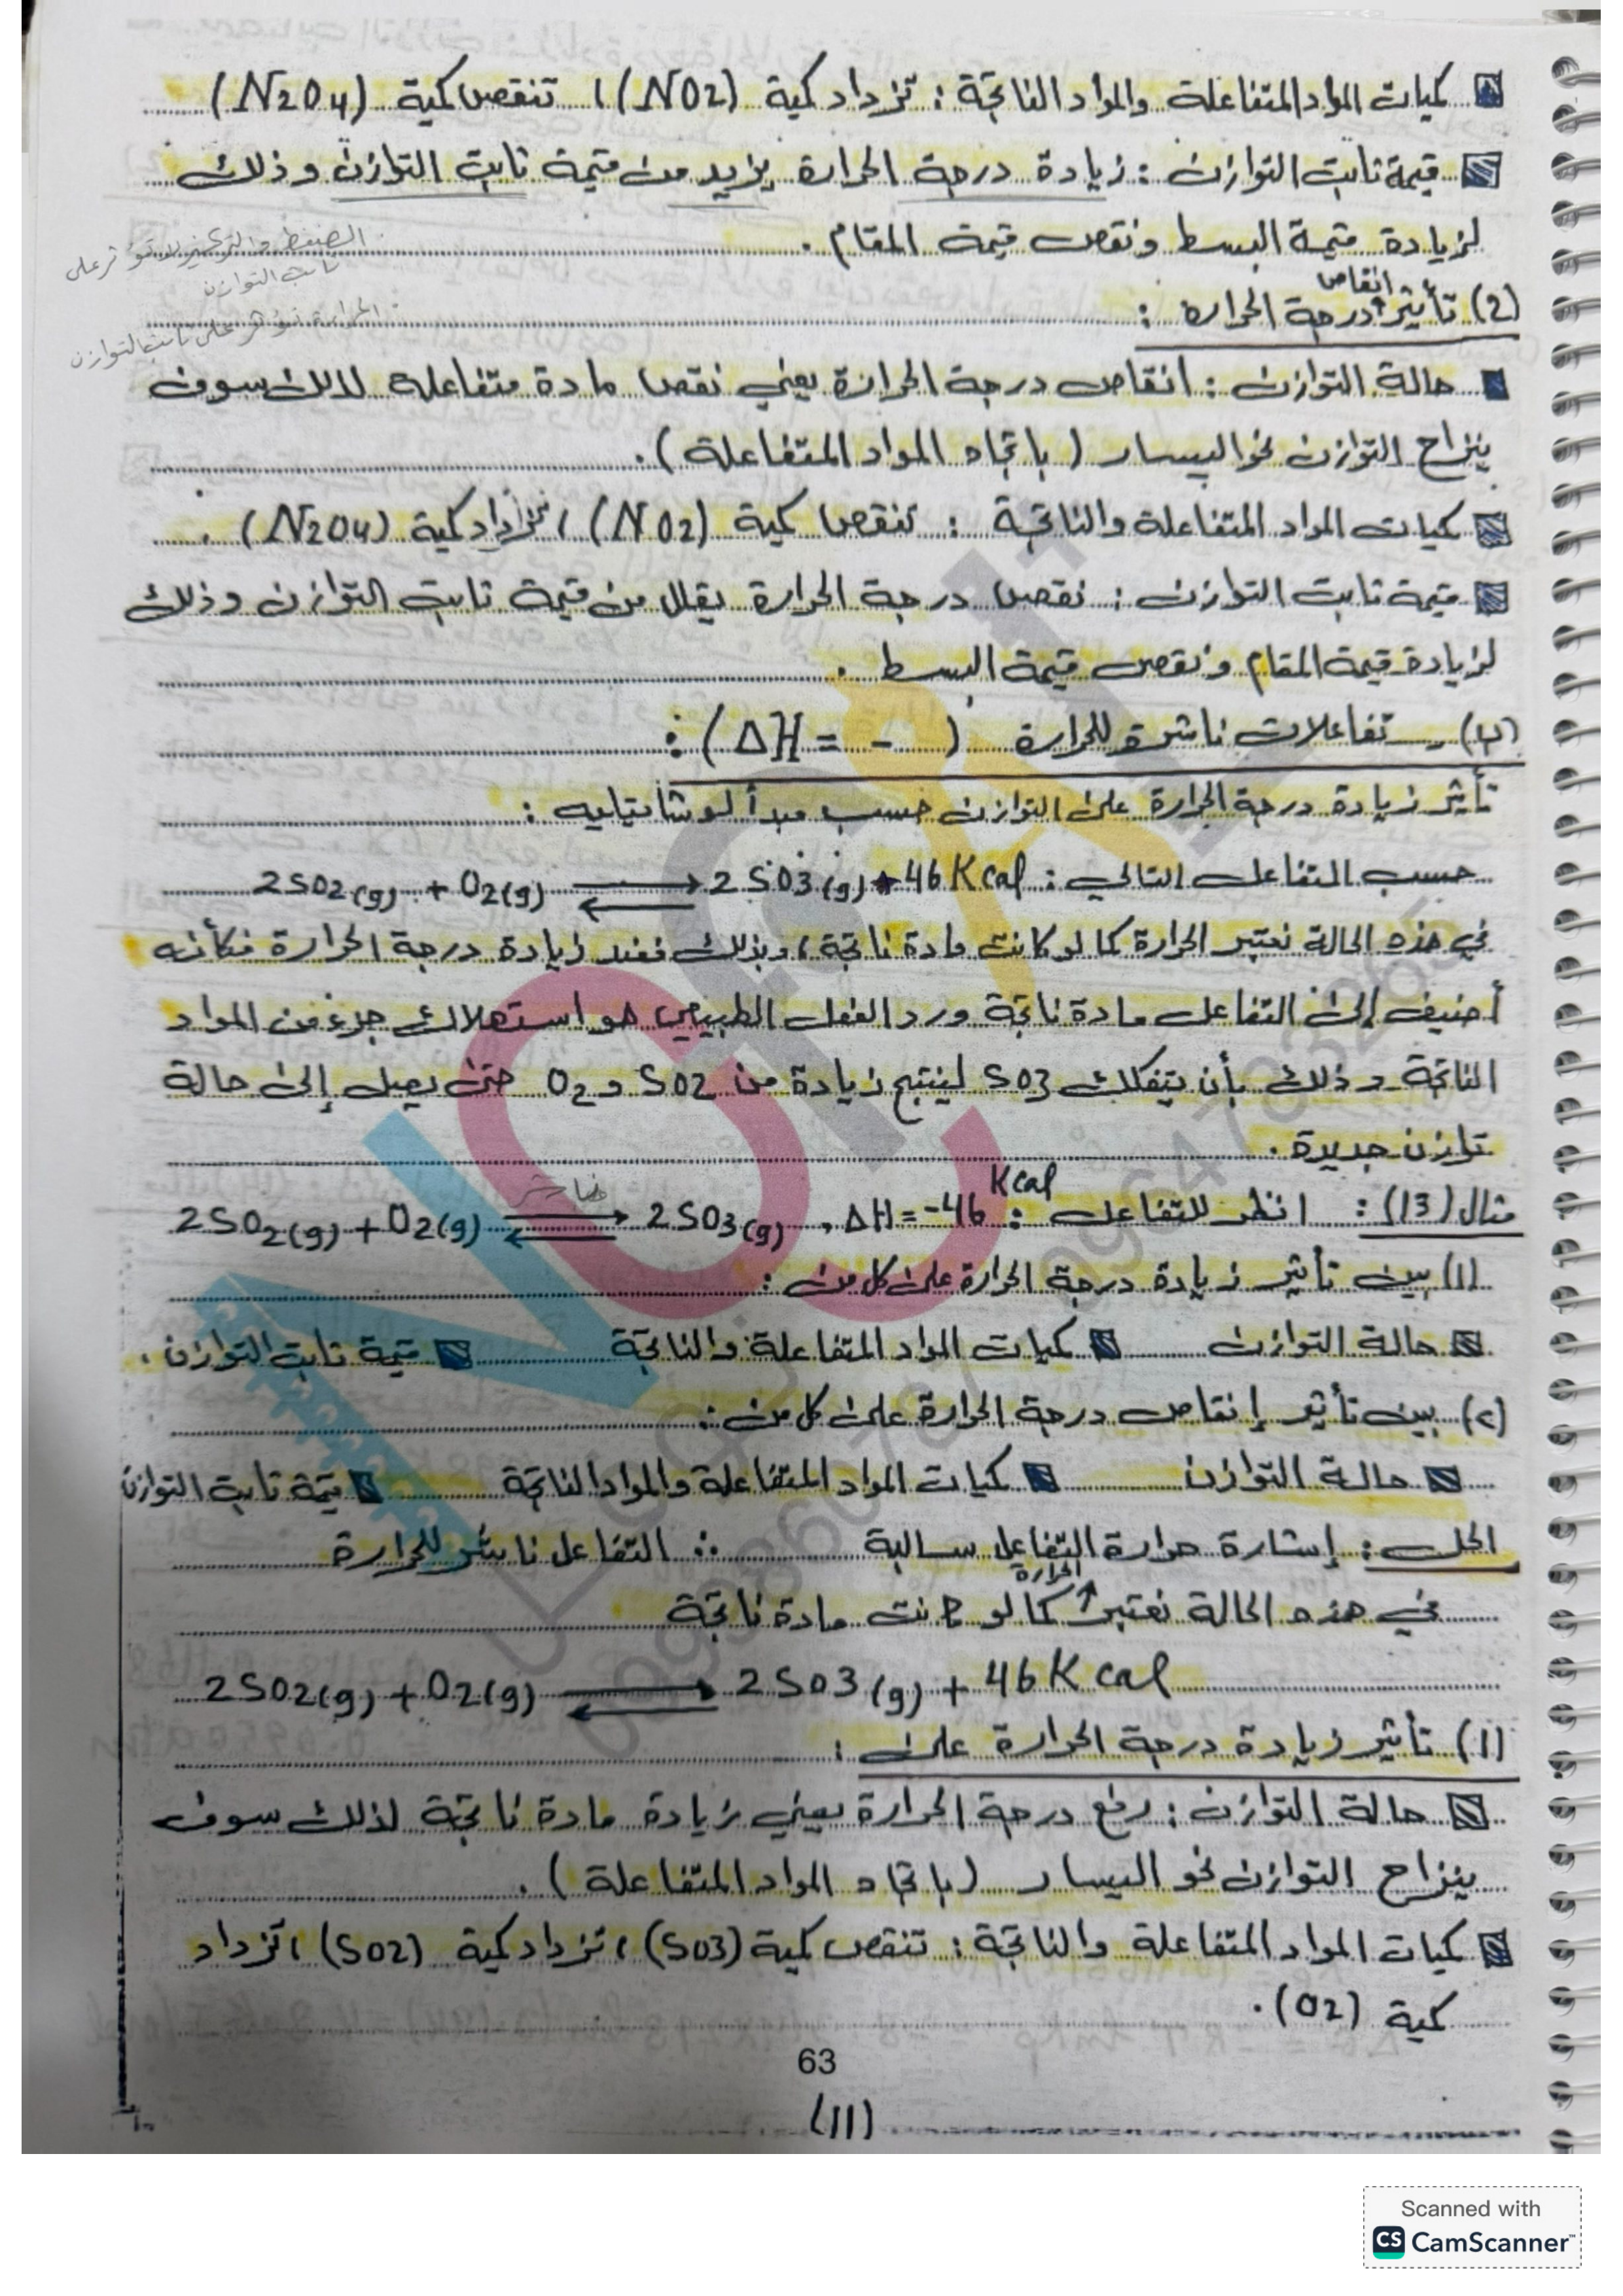 كميات المواد المتفاعلة والمواد الناتجة : تزداد كمية (NO2) ، تنقص كمية (N2O4)
قيمة ثابت التوازن : زيادة درجة الحرارة يزيد من قيمة ثابت التوازن وذلك
لزيادة قيمة البسط ونقص قيمة المقام .
الضغط والتركيز لا تؤثر على
ثابت التوازن
الحرارة تؤثر على ثابت التوازن
(2) تأثير انقاص درجة الحرارة :
حالة التوازن : انقاص درجة الحرارة يعني نقص مادة متفاعلة لذلك سوف
ينزاح التوازن نحو اليسار ( باتجاه المواد المتفاعلة ) .
كميات المواد المتفاعلة والناتجة : تنقص كمية (NO2) ، تزداد كمية (N2O4) .
قيمة ثابت التوازن : نقص درجة الحرارة يقلل من قيمة ثابت التوازن وذلك
لزيادة قيمة المقام ونقص قيمة البسط .
(ب) - تفاعلات ناشرة للحرارة ( ΔH = - ) :
تأثير زيادة درجة الحرارة على التوازن حسب مبدأ لوشاتيليه :
حسب التفاعل التالي : 2SO2(g) + O2(g) ⇌ 2SO3(g) + 46 Kcal
في هذه الحالة نعتبر الحرارة كما لو كانت مادة ناتجة ، وبذلك فعند زيادة درجة الحرارة فكأنه
أضيف إلى التفاعل مادة ناتجة ورد الفعل الطبيعي هو استهلاك جزء من المواد
الناتجة وذلك بأن يتفكك SO3 لينتج زيادة من SO2 و O2 حتى يصل إلى حالة
توازن جديدة .
مثال (13) : انظر للتفاعل : 2SO2(g) + O2(g) ⇌ 2SO3(g) , ΔH = -46 Kcal
ناشر
(1) بين تأثير زيادة درجة الحرارة على كل من :
حالة التوازن كميات المواد المتفاعلة والناتجة قيمة ثابت التوازن .
(2) بين تأثير إنقاص درجة الحرارة على كل من :
حالة التوازن كميات المواد المتفاعلة والمواد الناتجة قيمة ثابت التوازن
الحل : إشارة حرارة التفاعل سالبة ∴ التفاعل ناشر للحرارة
في هذه الحالة نعتبر الحرارة كما لو كانت مادة ناتجة
2SO2(g) + O2(g) ⇌ 2SO3(g) + 46 Kcal
(1) تأثير زيادة درجة الحرارة على :
حالة التوازن : رفع درجة الحرارة يعني زيادة مادة ناتجة لذلك سوف
ينزاح التوازن نحو اليسار (باتجاه المواد المتفاعلة ) .
كميات المواد المتفاعلة والناتجة : تنقص كمية (SO3) ، تزداد كمية (SO2) ، تزداد
كمية (O2) .
63
(11)
Scanned with
CS CamScanner